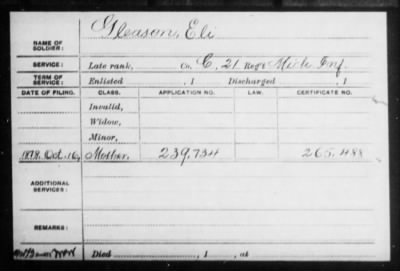 Gleason, Eli
NAME OF SOLDIER:
SERVICE: Late rank, Co. C, 21 Reg't Mich Inf.
TERM OF SERVICE: Enlisted , 1 Discharged , 1
DATE OF FILING. CLASS. APPLICATION NO. LAW. CERTIFICATE NO.
Invalid,
Widow,
Minor,
1878 Oct. 16, Mother, 239.734 265.488
ADDITIONAL SERVICES:
REMARKS:
Died , 1 , at